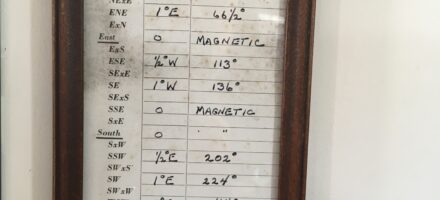 NExE
ENE 1°E 66½°
ExN
East 0 MAGNETIC
ExS
ESE ½°W 113°
SExE
SE 1°W 136°
SExS
SSE 0 MAGNETIC
SxE
South 0 " "
SxW
SSW ½°E 202°
SWxS
SW 1°E 224°
SWxW